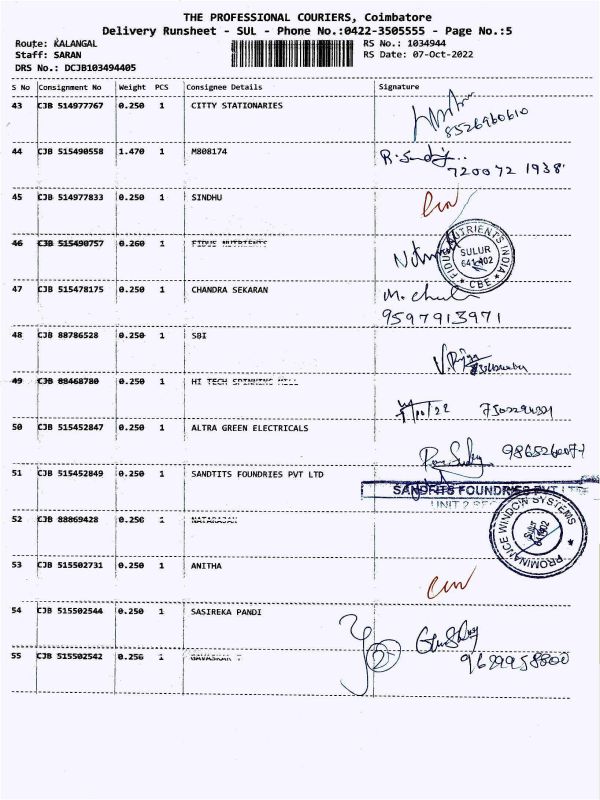 THE PROFESSIONAL COURIERS, Coimbatore
Delivery Runsheet - SUL - Phone No.:0422-3505555 - Page No.:5
Route: KALANGAL RS No.: 1034944
Staff: SARAN RS Date: 07-Oct-2022
DRS No.: DCJB103494405
S No Consignment No Weight PCS Consignee Details Signature
43 CJB 514977767 0.250 1 CITTY STATIONARIES
8526960610
44 CJB 515490558 1.470 1 M808174
720072 1938
45 CJB 514977833 0.250 1 SINDHU
46 CJB 515490757 0.260 1 FIDUS NUTRIENTS
FIDUS NUTRIENTS INDIA
SULUR
641 402
CBE
47 CJB 515478175 0.250 1 CHANDRA SEKARAN
9597913971
48 CJB 88786528 0.250 1 SBI
49 CJB 88468780 0.250 1 HI TECH SPINNING MILL
50 CJB 515452847 0.250 1 ALTRA GREEN ELECTRICALS
51 CJB 515452849 0.250 1 SANDTITS FOUNDRIES PVT LTD
SANDFITS FOUNDRIES PVT LTD
UNIT 2
52 CJB 88869428 0.250 1 NATARAJAN
PROMINANCE WINDOW SYSTEMS
53 CJB 515502731 0.250 1 ANITHA
54 CJB 515502544 0.250 1 SASIREKA PANDI
55 CJB 515502542 0.256 1 GAVASKAR T
9629958800